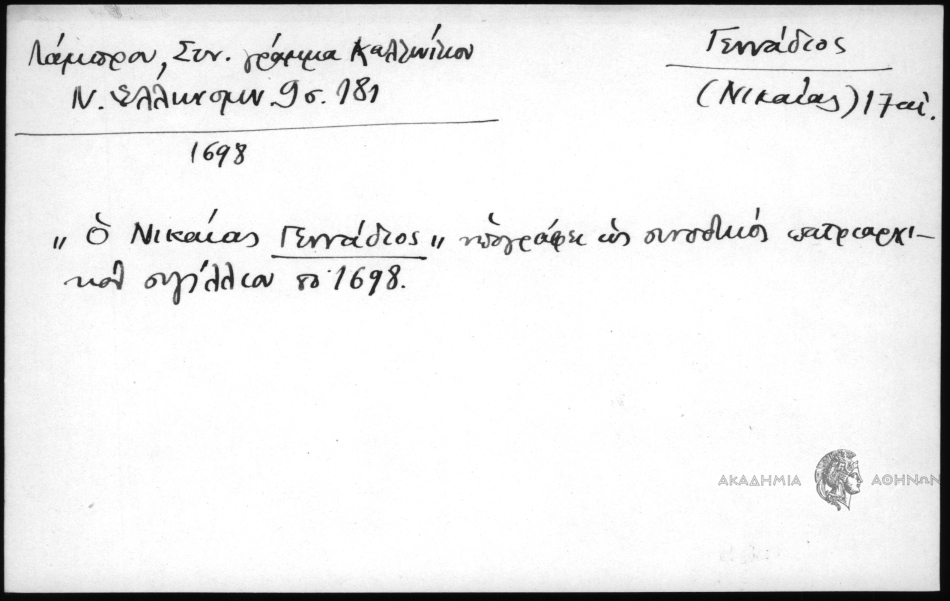 Λάμπρου, Συν. γράμμα Καλλινίκου
Ν. Ἑλληνομν. 9 σ. 181
1698
Γεννάδιος
(Νικαίας) 17 αἰ.
„ Ὁ Νικαίας Γεννάδιος „ ὑπογράφει ὡς συνοδικός πατριαρχι-
κοῦ σιγίλλιον τό 1698.
ΑΚΑΔΗΜΙΑ ΑΘΗΝΩΝ